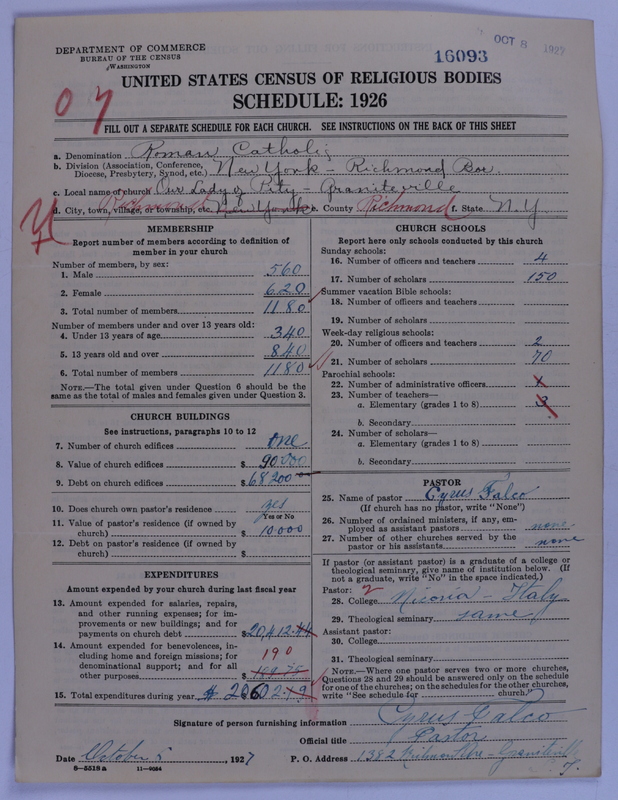 DEPARTMENT OF COMMERCE
BUREAU OF THE CENSUS
WASHINGTON
16093
OCT 8 1927
UNITED STATES CENSUS OF RELIGIOUS BODIES
SCHEDULE: 1926
07
FILL OUT A SEPARATE SCHEDULE FOR EACH CHURCH. SEE INSTRUCTIONS ON THE BACK OF THIS SHEET
a. Denomination Roman Catholic
b. Division (Association, Conference, Diocese, Presbytery, Synod, etc.) New York - Richmond Bor.
c. Local name of church Our Lady of Pity - Graniteville
d. City, town, village, or township, etc. Richmond New York e. County Richmond f. State N.Y
MEMBERSHIP
Report number of members according to definition of
member in your church
Number of members, by sex:
1. Male 560
2. Female 620
3. Total number of members 1180
Number of members under and over 13 years old:
4. Under 13 years of age 340
5. 13 years old and over 840
6. Total number of members 1180
NOTE.—The total given under Question 6 should be the
same as the total of males and females given under Question 3.
CHURCH BUILDINGS
See instructions, paragraphs 10 to 12
7. Number of church edifices One
8. Value of church edifices $ 90.000
9. Debt on church edifices $ 68200
10. Does church own pastor's residence yes
Yes or No
11. Value of pastor's residence (if owned by
church) $ 10.000
12. Debt on pastor's residence (if owned by
church) $
EXPENDITURES
Amount expended by your church during last fiscal year
13. Amount expended for salaries, repairs,
and other running expenses; for im-
provements or new buildings; and for
payments on church debt $20,412.44
14. Amount expended for benevolences, in-
cluding home and foreign missions; for
denominational support; and for all
other purposes 190 189.75
15. Total expenditures during year $ 20602.19
CHURCH SCHOOLS
Report here only schools conducted by this church
Sunday schools:
16. Number of officers and teachers 4
17. Number of scholars 150
Summer vacation Bible schools:
18. Number of officers and teachers
19. Number of scholars
Week-day religious schools:
20. Number of officers and teachers 2
21. Number of scholars 70
Parochial schools:
22. Number of administrative officers
23. Number of teachers—
a. Elementary (grades 1 to 8) 3
b. Secondary
24. Number of scholars—
a. Elementary (grades 1 to 8)
b. Secondary
PASTOR
25. Name of pastor Cyrus Falco
(If church has no pastor, write "None")
26. Number of ordained ministers, if any, em-
ployed as assistant pastors none
27. Number of other churches served by the
pastor or his assistants none
If pastor (or assistant pastor) is a graduate of a college or
theological seminary, give name of institution below. (If
not a graduate, write "No" in the space indicated.)
Pastor: 2
28. College Italy
29. Theological seminary same
Assistant pastor:
30. College
31. Theological seminary
NOTE.—Where one pastor serves two or more churches,
Questions 28 and 29 should be answered only on the schedule
for one of the churches; on the schedules for the other churches,
write "See schedule for church."
Signature of person furnishing information Cyrus Falco
Official title Pastor
Date October 5, 1927 P. O. Address Ave - Graniteville
6—5518a 11—9084